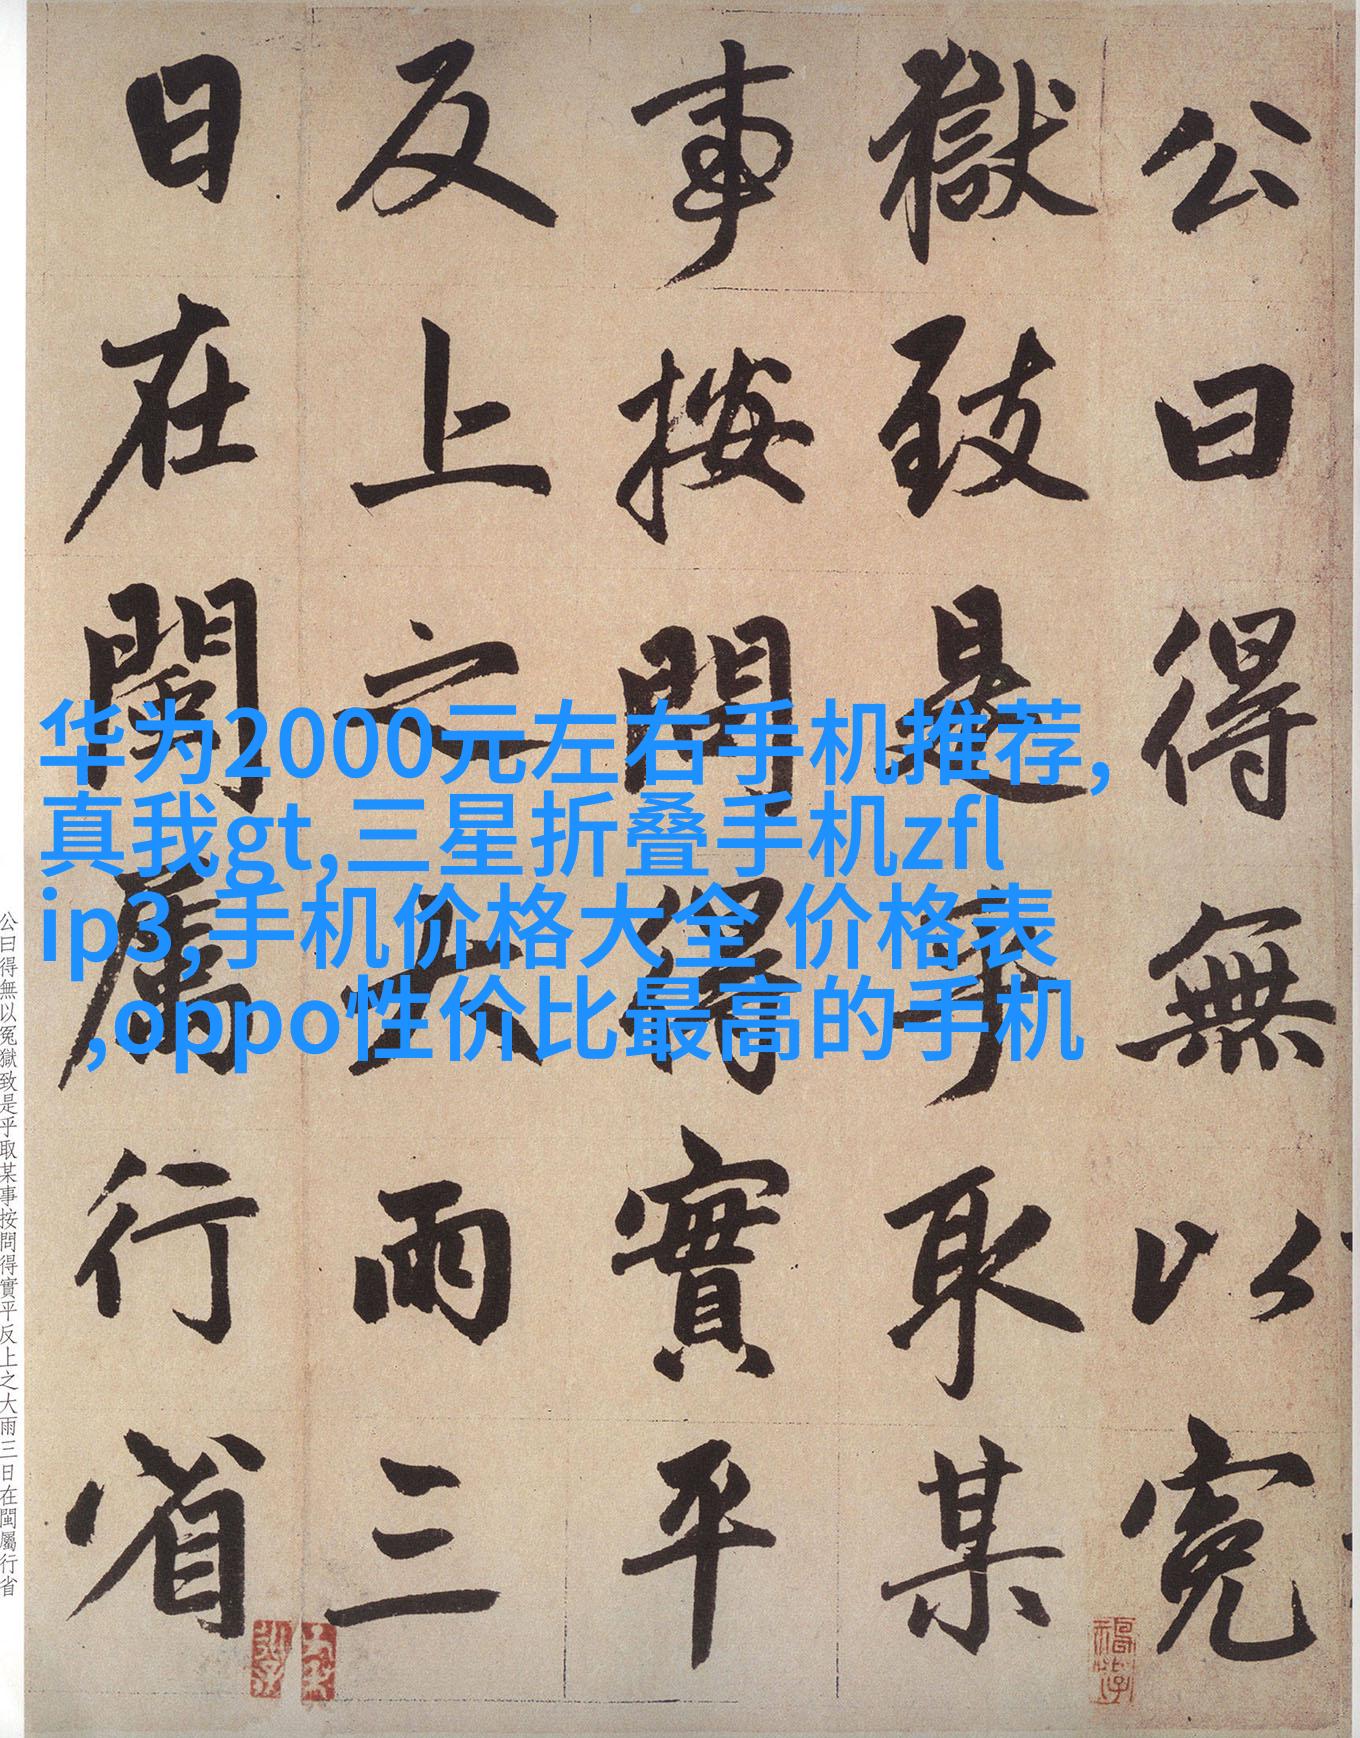 公曰得無以冤
獄致是乎取某
事按問得實平
反上之大雨三
日在閩屬行省
华为2000元左右手机推荐,
真我gt,三星折叠手机zfl
ip3,手机价格大全 价格表
,oppo性价比最高的手机
公曰得無以冤獄致是乎取某事按問得實平反上之大雨三日在閩屬行省